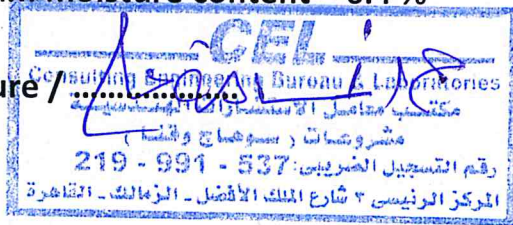 moisture content 8.4 %
CEL
Consulting Engineering Bureau & Laboratories
ure / ....................
مكتب معامل الاستشارات الهندسية
مشروعات ( سوهاج وقنا )
رقم التسجيل الضريبى: 537 - 991 - 219
المركز الرئيسى ٣ شارع الملك الأفضل - الزمالك - القاهرة